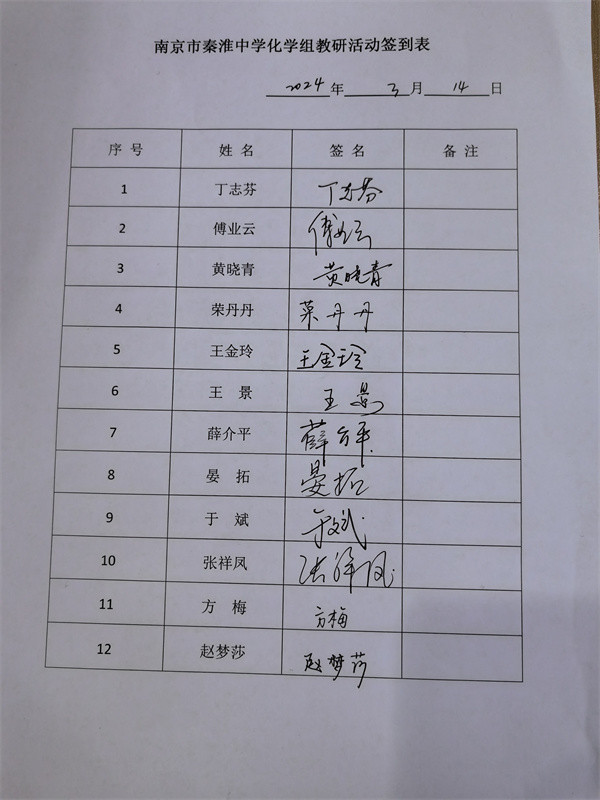 南京市秦淮中学化学组教研活动签到表
2024年 3月 14日
序号 姓名 签名 备注
1 丁志芬 丁志芬
2 傅业云 傅业云
3 黄晓青 黄晓青
4 荣丹丹 荣丹丹
5 王金玲 王金玲
6 王 景 王景
7 薛介平 薛介平
8 晏 拓 晏拓
9 于 斌 于斌
10 张祥凤 张祥凤
11 方 梅 方梅
12 赵梦莎 赵梦莎